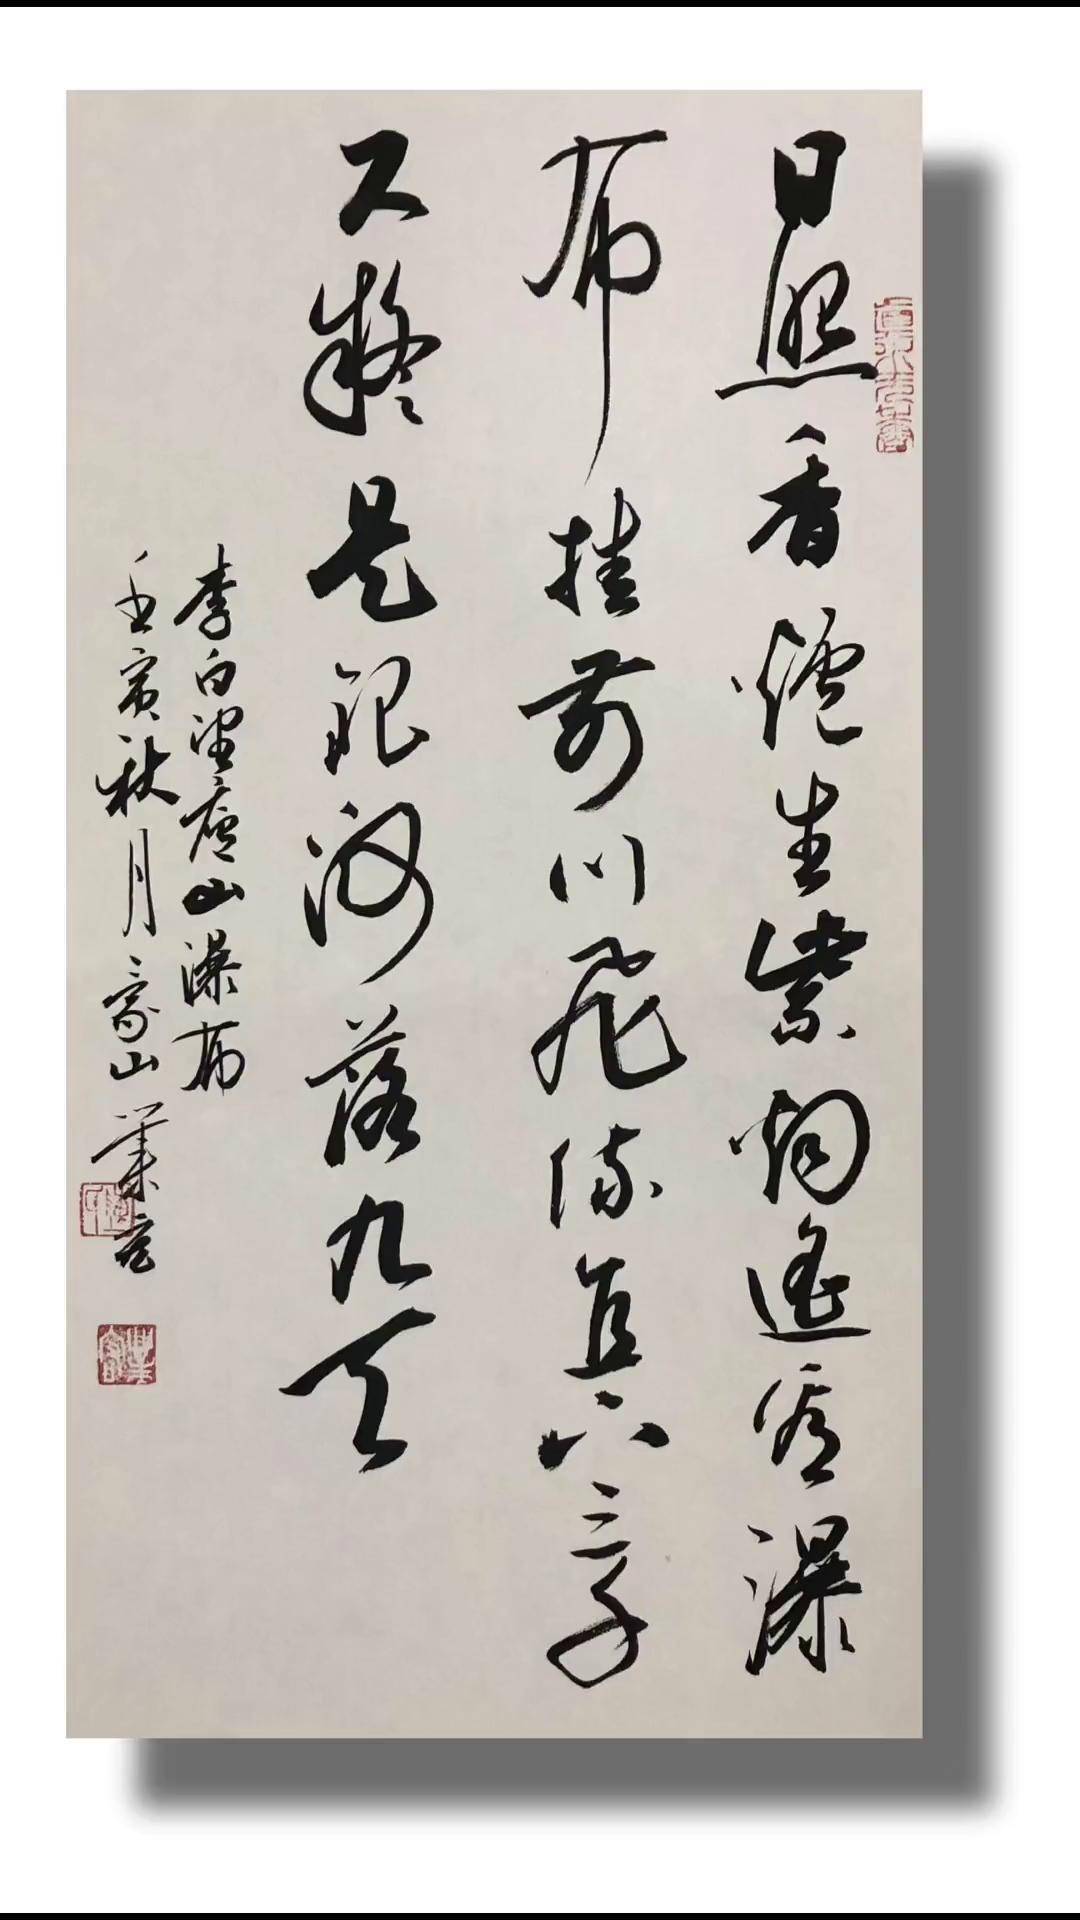 日照香爐生紫烟遙看瀑
布挂前川飛流直下三千
尺疑是銀河落九天
李白望廬山瀑布
壬寅秋月山